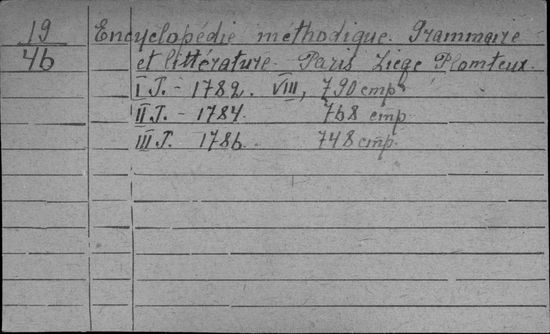 19
46
Encyclopédie méthodique. Grammaire
et littérature. Paris Liege Plomteux.
I T. - 1782. VIII, 790 cmp.
II T. - 1784. 768 cmp.
III T. 1786. 748 cmp.